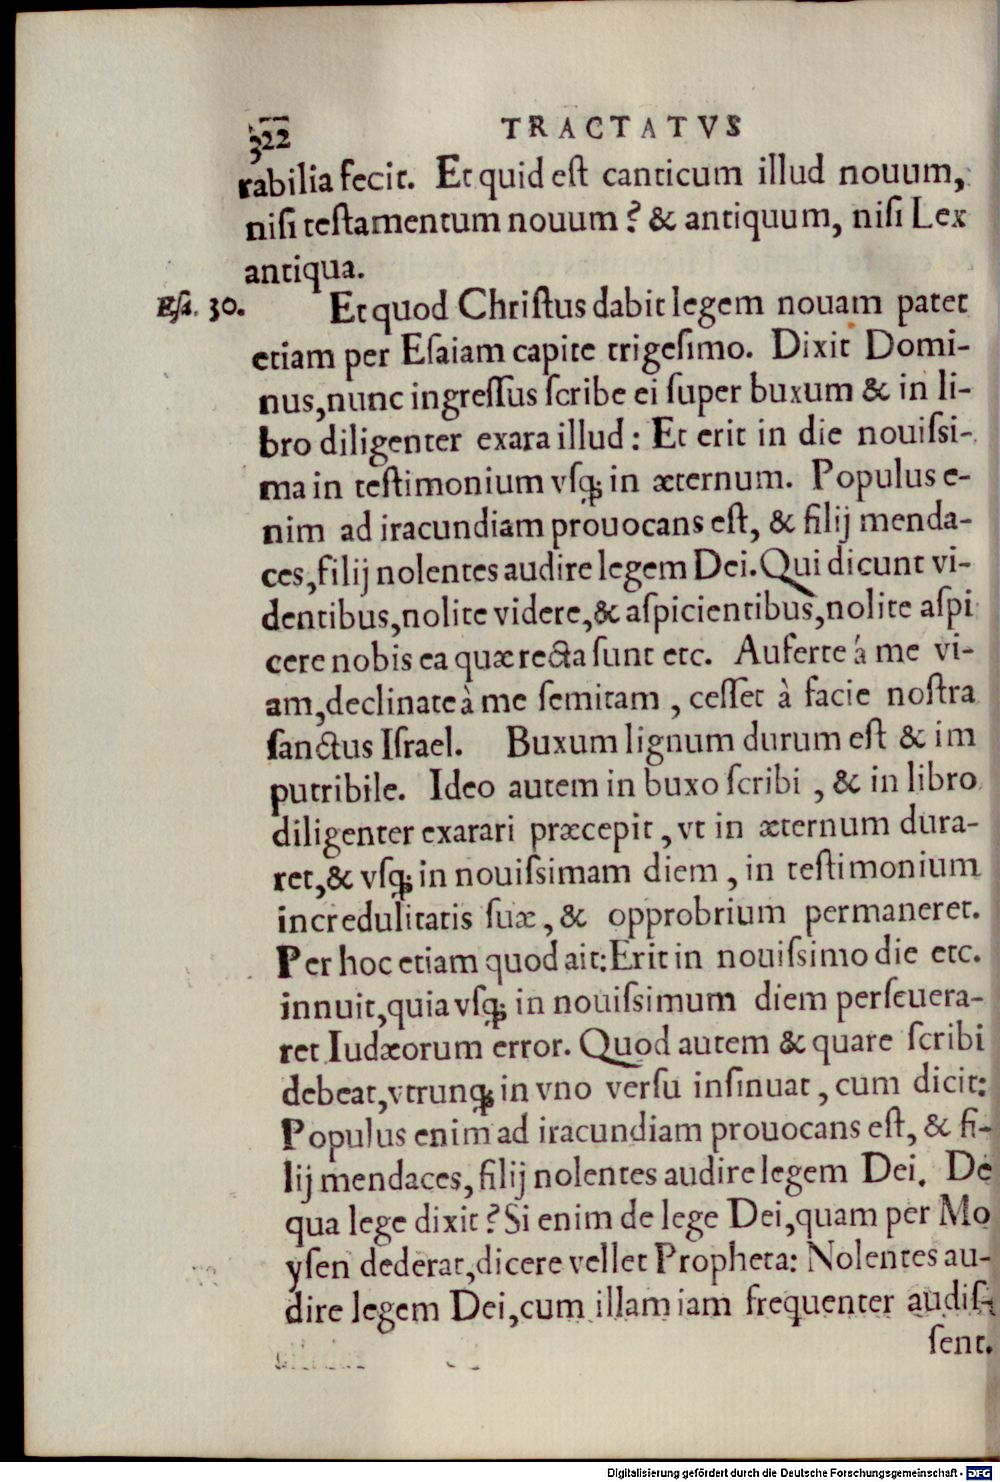 322 TRACTATVS
rabilia fecit. Et quid eſt canticum illud nouum,
niſi teſtamentum nouum? & antiquum, niſi Lex
antiqua.
Eſa. 30. Et quod Chriſtus dabit legem nouam patet
etiam per Eſaiam capite trigeſimo. Dixit Domi-
nus, nunc ingreſſus ſcribe ei ſuper buxum & in li-
bro diligenter exara illud: Et erit in die nouiſsi-
ma in teſtimonium vſq; in æternum. Populus e-
nim ad iracundiam prouocans eſt, & filij menda-
ces, filij nolentes audire legem Dei. Qui dicunt vi-
dentibus, nolite videre, & aſpicientibus, nolite aſpi
cere nobis ea quæ recta ſunt etc. Auferte á me vi-
am, declinate à me ſemitam, ceſſet à facie noſtra
ſanctus Iſrael. Buxum lignum durum eſt & im
putribile. Ideo autem in buxo ſcribi, & in libro
diligenter exarari præcepit, vt in æternum dura-
ret, & vſq; in nouiſsimam diem, in teſtimonium
incredulitatis ſuæ, & opprobrium permaneret.
Per hoc etiam quod ait: Erit in nouiſsimo die etc.
innuit, quia vſq; in nouiſsimum diem perſeuera-
ret Iudæorum error. Quod autem & quare ſcribi
debeat, vtrunq; in vno verſu inſinuat, cum dicit:
Populus enim ad iracundiam prouocans eſt, & fi-
lij mendaces, filij nolentes audire legem Dei. De
qua lege dixit? Si enim de lege Dei, quam per Mo
yſen dederat, dicere vellet Propheta: Nolentes au-
dire legem Dei, cum illam iam frequenter audiſ-
ſent.
Digitalisierung gefördert durch die Deutsche Forschungsgemeinschaft - DFG